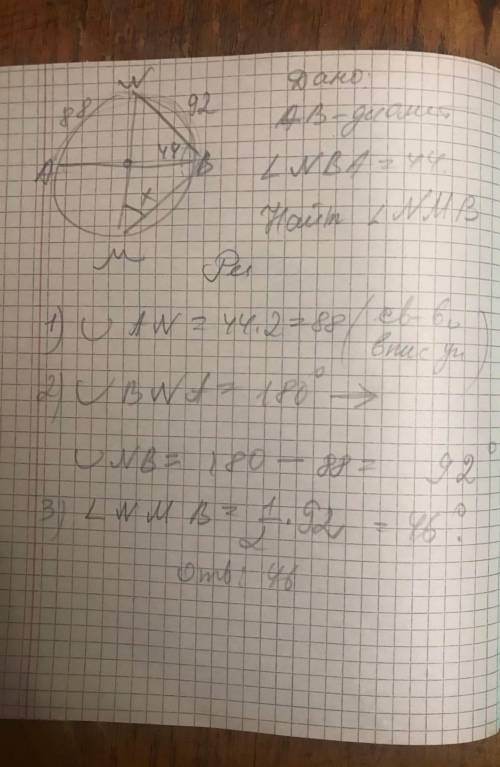 N
88
92
A
44
B
x
M
Дано:
AB - диамет
∠NBA = 44.
Найт ∠NMB
Реш
1) ∪ AN = 44·2 = 88 (св-во
впис уг)
2) ∪ BNA = 180° →
∪NB = 180 - 88 = 92°
3) ∠NMB = 1/2 · 92 = 46°.
Отв: 46